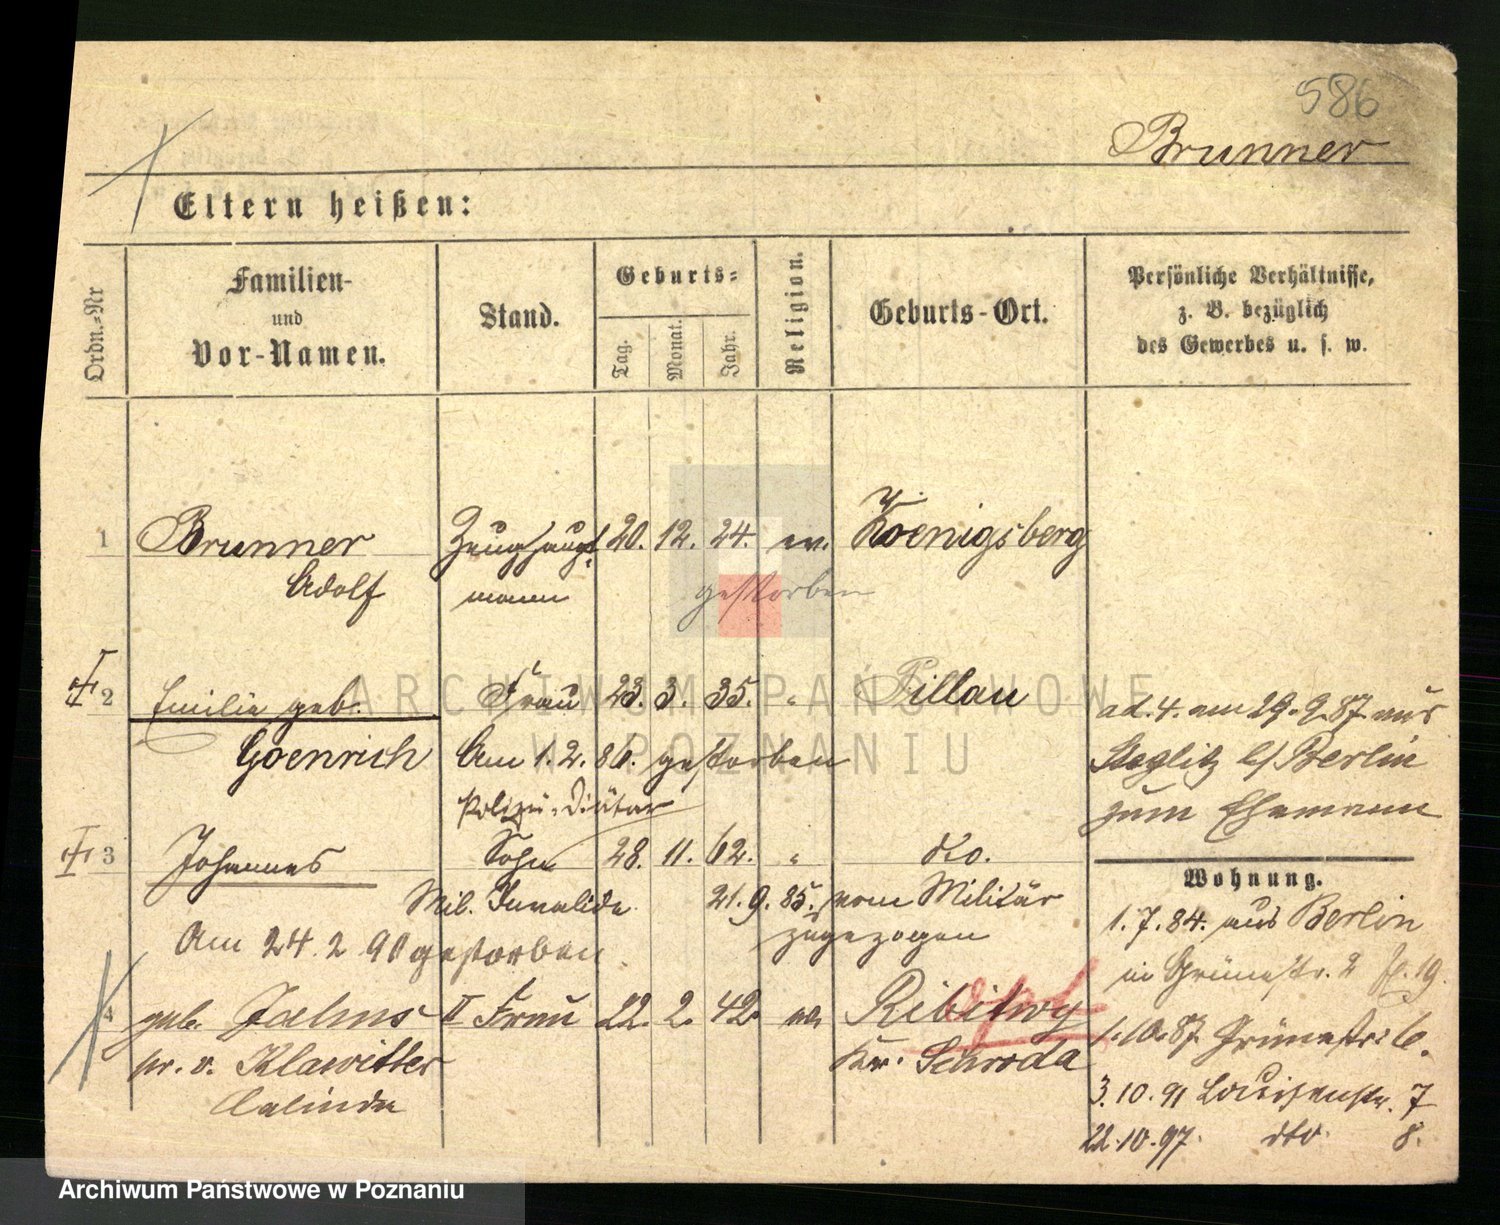 586
Brunner
Eltern heißen:
Ordn.-Nr
Familien-
und
Vor-Namen.
Stand.
Geburts-
Tag.
Monat.
Jahr.
Religion.
Geburts-Ort.
Persönliche Verhältnisse,
z. B. bezüglich
des Gewerbes u. s. w.
1 Brunner Zeughaupt- 20. 12. 24. ev. Koenigsberg
Adolf mann gestorben
2 Emilie geb. Frau 23. 3. 35. " Pillau
Goenrich Am 1. 2. 86. gestorben
ad. 4. am 29. 9. 87. aus
Steglitz b/ Berlin
zum Ehemann
Polizei-Diätar
3 Johannes Sohn 28. 11. 62. " dto.
Mil. Invalide 21. 9. 85. vom Militär
zugezogen
Am 24. 2 90 gestorben.
Wohnung.
1. 7. 84. aus Berlin
in Grünestr. 2 19.
4 geb. Jahns II Frau 22. 2. 42. ev. Ribitwy
v. Klawitter Kr. Schroda
1. 10. 87. Grünestr. 6.
3. 10. 91 Louisenstr. 7
22. 10. 97. dto. 8.
ARCHIWUM PAŃSTWOWE
W POZNANIU
Archiwum Państwowe w Poznaniu